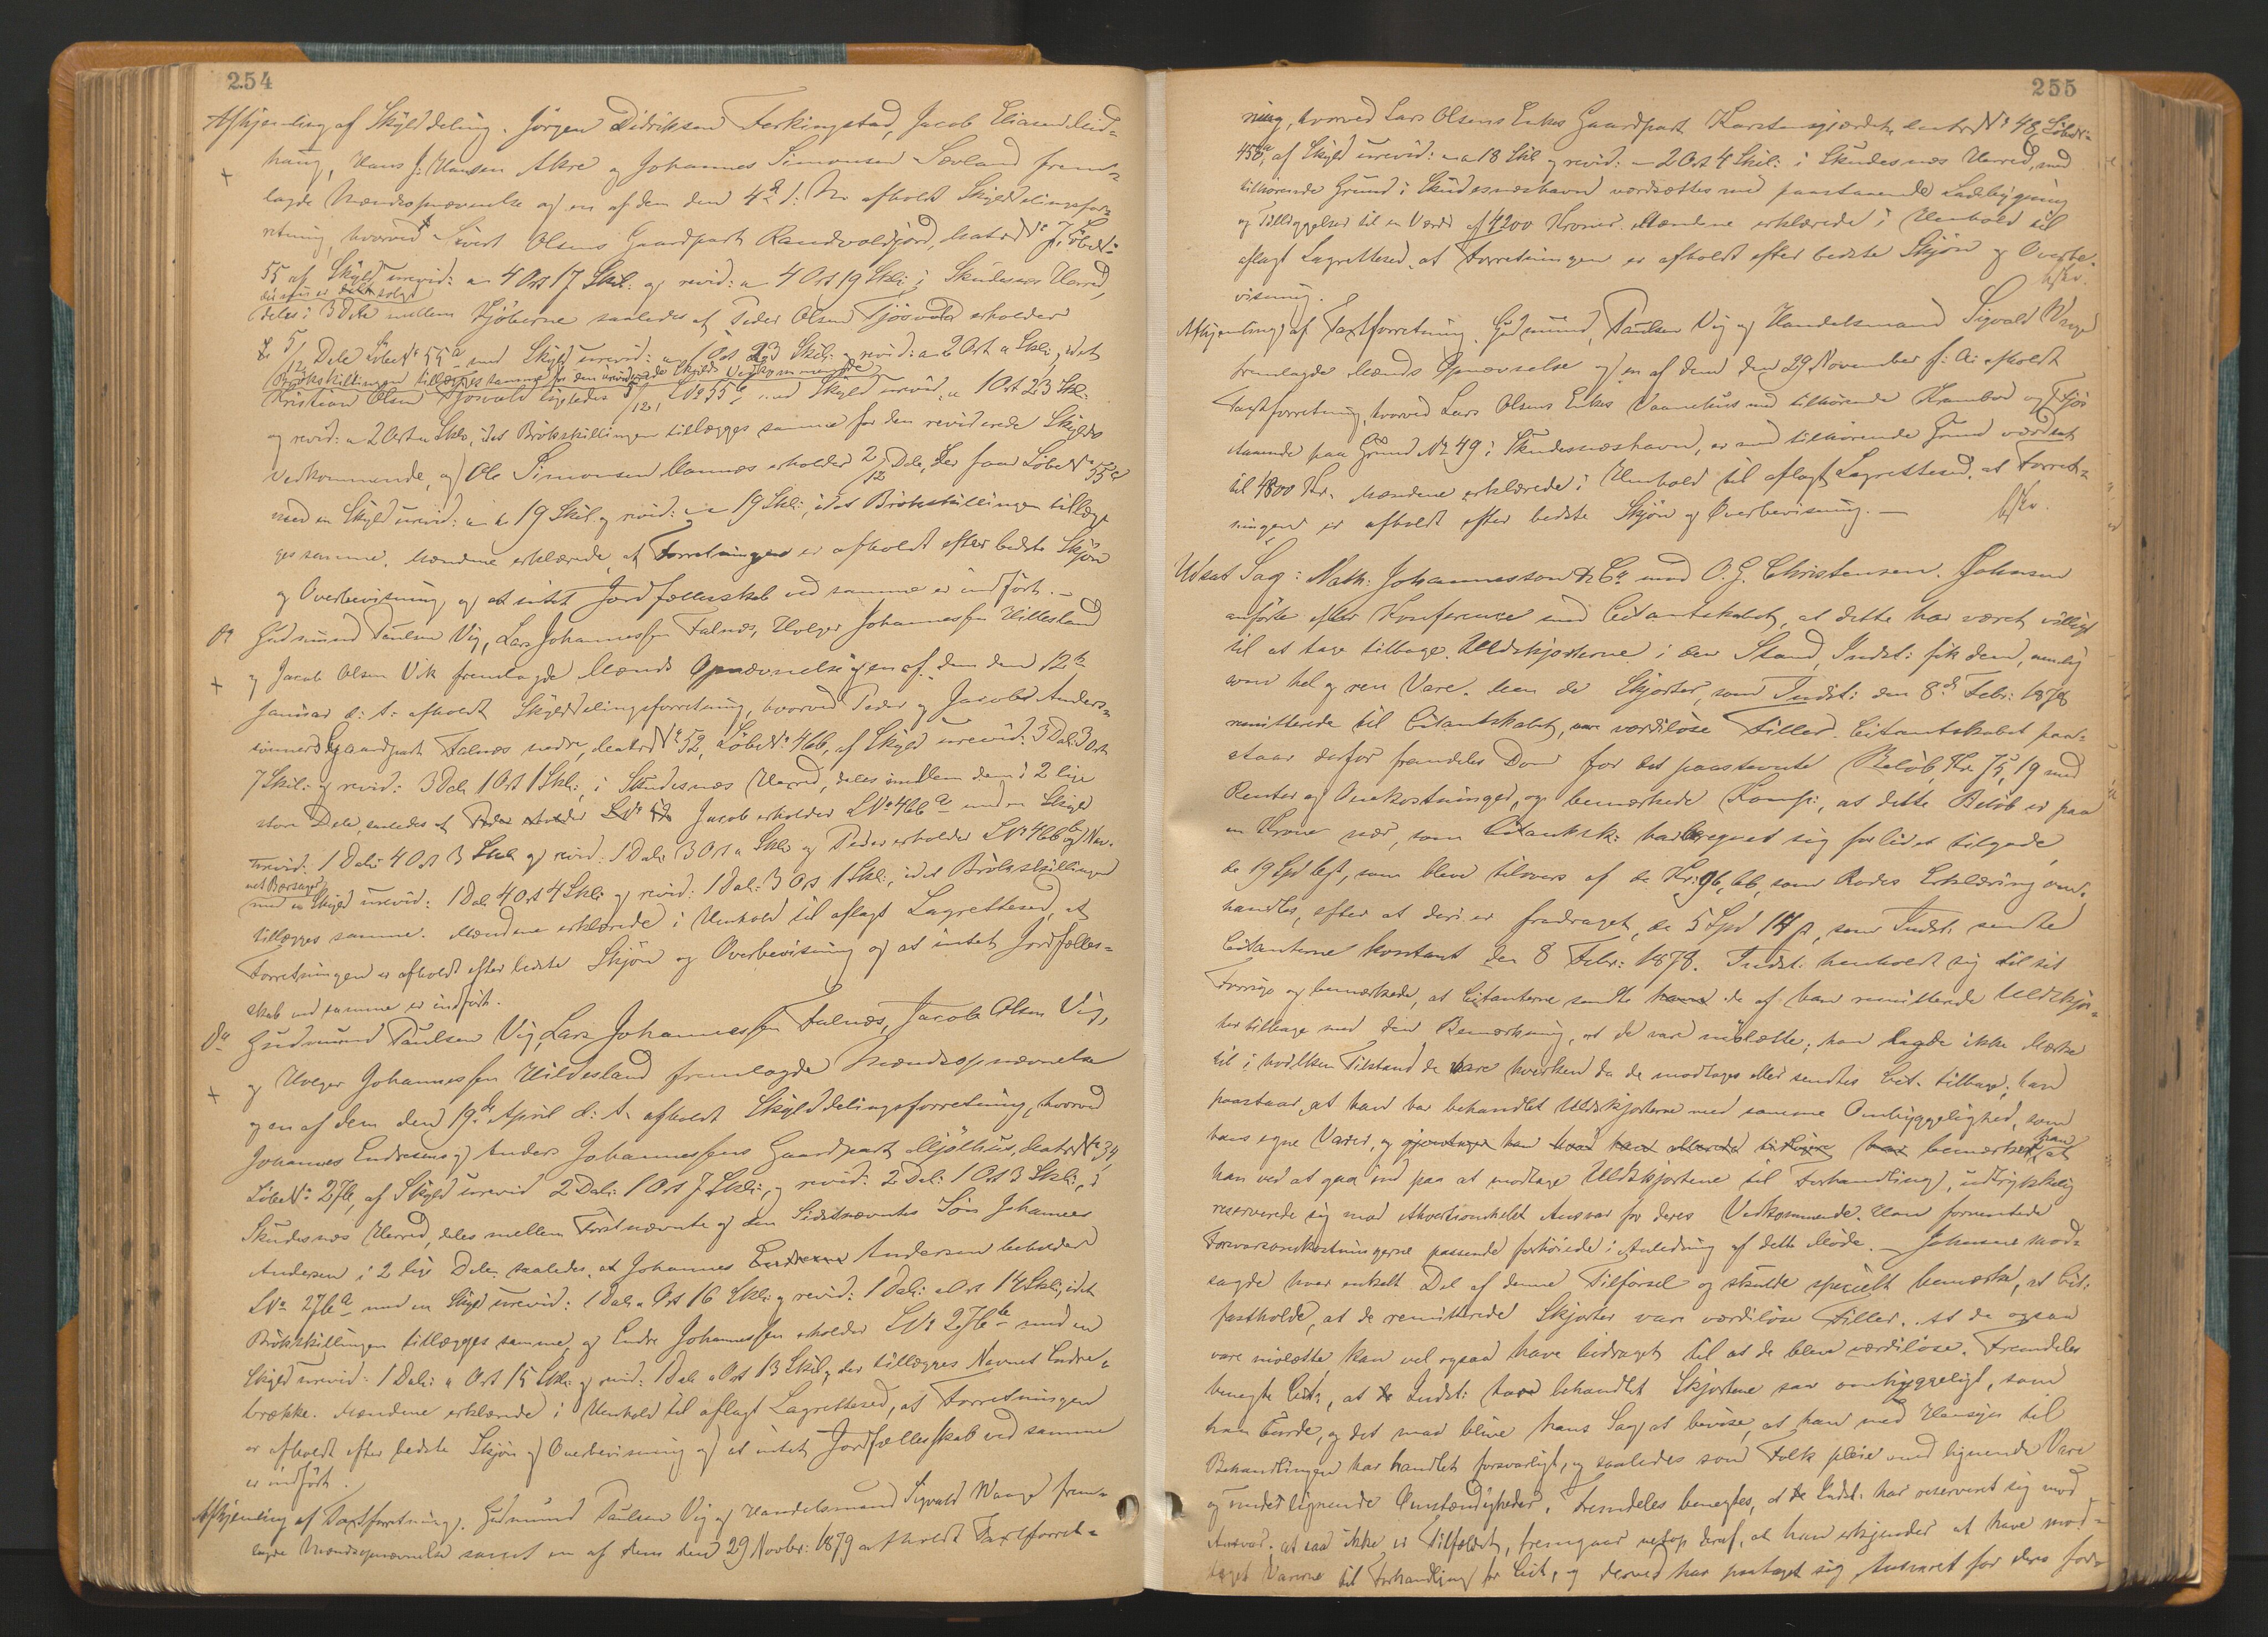 254
Afhjemling af Skylddeling. Jörgen Didriksen Ferkingstad, Jacob Eliasen
haug, Hans J. Hansen Akre og Johannes Simonsen Sævland frem-
lagde Mændsopnævnelse og en af dem den 4de d: M: afholdt Skylddelingsfor-
retning, hvorved Sivert Olsens Gaardpart Matr N: 7, LöbeN:
55 af Skyld urevid: a 4 Ort 17 Skil: og revid: a 4 Ort 19 Skil: i Skudesnes Herred,
der nu er solgt
deles i 3 Dele mellem Kjöberne saaledes at Peder Olsen Tjösvold erholder
5/12 Dele LöbeN: 55a med Skyld urevid: a 1 Ort 23 Skil: og revid: a 2 Ort a Skil:, idet
Brökskillingen tillægges samme for den ureviderede Skylds Vedkommende
Kristian Olsen Tjösvold ligeledes 5/12, LN: 55b, med Skyld urevid. a 1 Ort 23 Skl.
og revid: a 2 Ort a Skil:, idet Brökskillingen tillægges samme for den reviderede Skylds
Vedkommende, og Ole Simonsen Mannes erholder 2/12 Dele, der faar LöbeN: 55c
med en Skyld urevid: a a 19 Skil og revid: a a 19 Skil:, idet Brökskillingen tillæg-
ges samme. Mændene erklærede, at Forretningen er afholdt efter bedste Skjön
og Overbevisning og at intet Jordfællesskab ved samme er indfört. -
Do Gudmund Paulsen Vig, Lars Johannessen Falnæs, Holger Johannessen Hillesland
og Jacob Olsen Vik fremlagde Mænds Opnævnelse og en af dem den 12te
Januar d: A: afholdt Skylddelingsforretning, hvorved Peder og Jacob Anders-
sönners Gaardpart Falnæs nedre, MatrN: 52, LöbeN: 466, af Skyld urevid: 3 Dal: 3 Ort
7 Skil: og revid: 3 Dal: 1 Ort 1 Skil:, i Skudesnes Herred, deles imellem dem i 2 lige
store Dele, saaledes at Jacob erholder LN: 466a med en Skyld
urevid: 1 Dal: 4 Ort 3 Skil: og revid: 1 Dal: 3 Ort a Skil: og Peder erholder LN: 466b og Nav-
net
med en Skyld urevid: 1 Dal: 4 Ort 4 Skil: og revid: 1 Dal: 3 Ort 1 Skil:, idet Brökskillingen
tillægges samme. Mændene erklærede i Henhold til aflagt Lagrettesed, at
Forretningen er afholdt efter bedste Skjön og Overbevisning og at intet Jordfælles-
skab ved samme er indfört.
Do Gudmund Paulsen Vig, Lars Johannessen Falnæs, Jacob Olsen Vig,
og Holger Johannessen Hillesland fremlagde Mændsopnævnelse
og en af dem den 19de April d: A: afholdt Skylddelingsforretning, hvorved
Johannes Endresens og Anders Johannessens Gaardpart Mjölhus, MatrN: 34,
LöbeN: 276, af Skyld urevid 2 Dal: 1 Ort 7 Skil: og revid: 2 Dal: 1 Ort 3 Skil:, i
Skudesnes Herred, deles mellem Förstnævnte og den Sidstnævntes Sön Johannes
Andersen i 2 lige Dele saaledes, at Johannes Endresen Andersen beholder
LN: 276a med en Skyld urevid: 1 Dal: a Ort 16 Skil: og revid: 1 Dal: a Ort 14 Skil:, idet
Brökskillingen tillægges samme, og Endre Johannessen erholder LN: 276b med en
Skyld urevid: 1 Dal: a Ort 15 Skil: og revid: 1 Dal: a Ort 13 Skil:, der tillægges Navnet Endre-
brække. Mændene erklærede i Henhold til aflagt Lagrettesed, at Forretningen
er afholdt efter bedste Skjön og Overbevisning og at intet Jordfællesskab ved samme
er indfört.
Afhjemling af Taxtforretning. Gudmund Paulsen Vig og Handelsmand Sigvald Waage frem-
lagde Mændsopnævnelse samt en af dem den 29 Novbr: 1879 afholdt Taxtforret-
255
ning, hvorved Lars Olsens Enkes Gaardpart MatrN: 48, LöbeN:
458a, af Skyld urevid: a a 18 Skil og revid: a 2 Ort 4 Skil: i Skudesnes Herred, med
tilhörende Grund i Skudesneshavn værdsættes med paastaaende Ladebygning
og Tilliggelser til en Værdi af 4200 Kroner. Mændene erklærede i Henhold til
aflagt Lagrettesed, at Forretningen er afholdt efter bedste Skjön og Overbe-
visning.
Afhjemling af Taxtforretning. Gudmund Paulsen Vig og Handelsmand Sigvald Waage
fremlagde Mænds Opnævnelse og en af dem den 29 November f: A: afholdt
Taxtforretning, hvorved Lars Olsens Enkes Vaanehus med tilhörende Krambod og Fjös
staaende paa Grund No 49 i Skudesneshavn, er med tilhörende Grund værdsat
til 4800 Kr. Mændene erklærede i Henhold til aflagt Lagrettesed, at Forret-
ningen er afholdt efter bedste Skjön og Overbevisning. -
Udsat Sag: Nath: Johannesson & Co mod O. G. Christensen. Johnsen
anförte efter Konference med Citantskabet, at dette har været villigt
til at tage tilbage Uldskjorterne i den Stand, Indst: fik dem, nemlig
som hel og ren Vare. Men de Skjorter, som Indst: den 8de Febr: 1878
remitterede til Citantskabet, var værdilöse Filler. Citantskabet paa-
staar derfor fremdeles Dom for det paastevnte Belöb, Kr. 75,19 med
Renter og Omkostninger, og bemærkede Komp:, at dette Belöb er paa
en Krone nær, som Citantsk: har beregnet sig for lidet tilgode,
de 19 Spd, som blev tilovers af de Kr: 96,66, som Rodes Erklæring om-
handler, efter at deri er fradraget, de 5 Spd, som Indst: sendte
Citanterne kontant den 8 Febr: 1878. Indst: henholdt sig til sit
Forrige og bemærkede, at Citanterne sendte ham de af ham remitterede Uldskjor-
ter tilbage med den Bemærkning, at de vare mölætte; han lagde ikke Mærke
til i hvilken Tilstand de vare hverken da de modtoges eller sendtes Cit: tilbage; han
paastaar, at han har behandlet Uldskjorterne med samme Omhyggelighed, som
hans egne Varer, og gjentager han hvad han allerede tidligere har bemærket, at
han ved at gaa ind paa at modtage Uldskjorterne til Forhandling, udtrykkelig
reserverede sig mod ethvertsomhelst Ansvar for deres Vedkommende. Han formentede
Forsvarsomkostningerne passende forhöiede i Anledning af dette Möde. - Johnsen mod-
sagde hver enkelt Del af denne Tilförsel og skulde specielt bemærke, at Cit:
fastholde, at de remitterede Skjorter vare værdilöse Filler. At de ogsaa
vare mölætte kan vel ogsaa have bidraget til at de blev værdilöse. Fremdeles
benegte Cit:, at Indst: have behandlet Skjorterne saa omhyggeligt, som
han burde, og det maa blive hans Sag at bevise, at han med Hensyn til
Behandlingen har handlet forsvarligt, og saaledes som Folk pleie med lignende Vare
og under lignende Omstændigheder. Fremdeles benegtes, at Indst: har reserveret sig mod
Ansvar. At saa ikke er Tilfældet, fremgaar netop deraf, at han erkjender at have mod-
taget Varerne til Forhandling for Cit:, og derved har paataget sig Ansvaret for deres for-